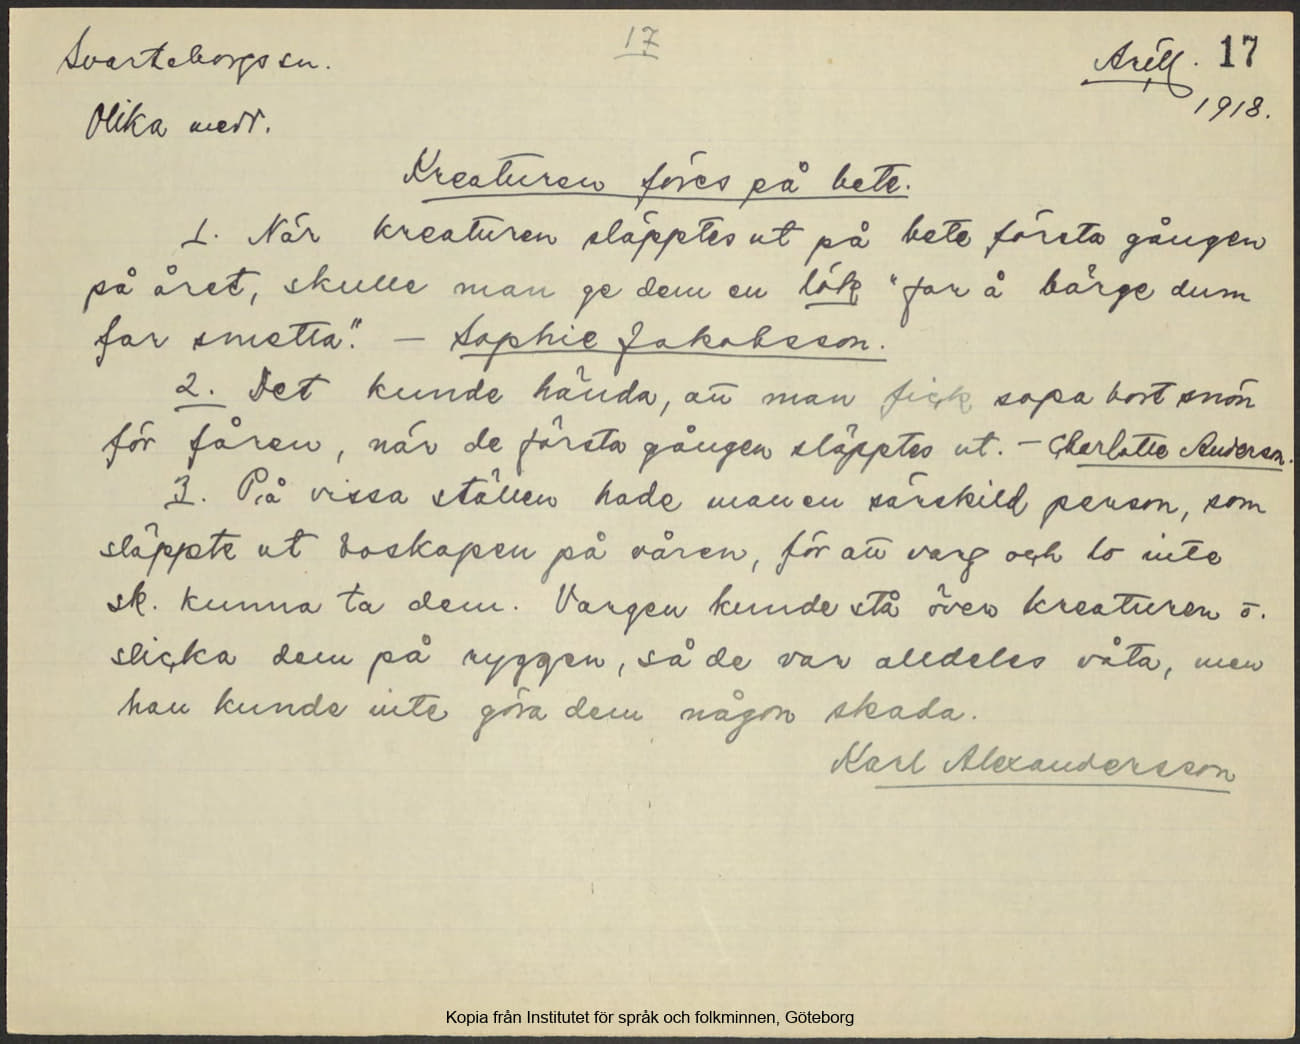 Svarteborgs sn.
17
Arill. 17
1918.
Olika medd.
Kreaturen föres på bete.
1. När kreaturen släpptes ut på bete första gången
på året, skulle man ge dem en lök "far å bärge dum
far smetta". — Sophie Jakobsson.
2. Det kunde hända, att man fick sopa bort snön
för fåren, när de första gången släpptes ut. — Charlotte Anderson.
3. På vissa ställen hade man en särskild person, som
släppte ut boskapen på våren, för att varg och lo inte
sk. kunna ta dem. Vargen kunde stå över kreaturen o.
slicka dem på ryggen, så de var alldeles våta, men
han kunde inte göra dem någon skada.
Karl Alexandersson
Kopia från Institutet för språk och folkminnen, Göteborg